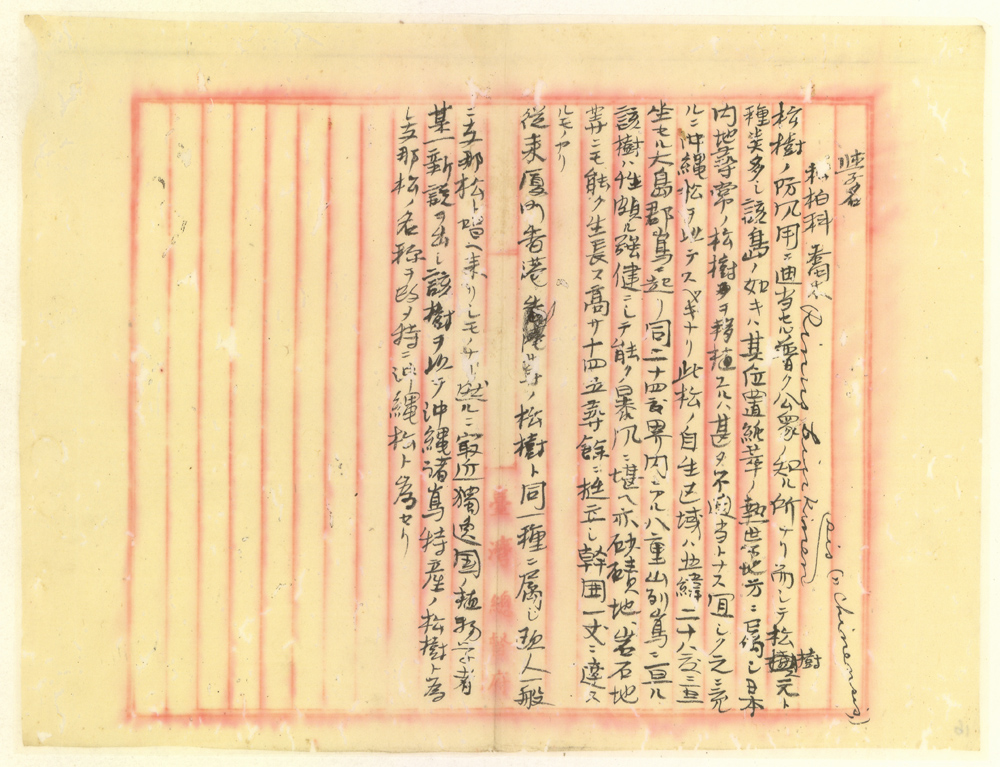 学名
松柏科 喬木 Pinus Luchuensis (P. chinensis)
松樹ノ防風用ニ適当セルハ普ク公衆ノ知ル所ナリ而シテ松樹元ト
種類多シ該島ノ如キハ其位置純華ノ熱世帯地方ニ偏シ日本
内地尋常ノ松樹ヲ移植スルハ甚タ不適当トナス宜シク之ニ充
ルニ沖縄松ヲ以テスベキナリ此松ノ自生区域ハ北緯二十八度ニ亘
坐セル大島郡嶌ニ起リ同二十四度界内ニアル八重山列嶌ニ亘ル
該樹ハ性頗ル強健ニシテ能ク暴風ニ堪ヘ亦砂磧地、岩石地
等ニモ能ク生長ス高サ十四五尋餘ニ挺立シ幹囲一丈ニ達ス
ルモノアリ
従来厦門香港等ノ松樹ト同一種ニ属シ邦人一般
ニ支那松ト唱ヘ来リシモ然ルニ最近獨逸国ノ植物学者
某一新説ヲ出シ該樹ヲ以テ沖縄諸嶌特産ノ松樹ト為
シ支那松ノ名称ヲ改メ特ニ沖縄松ト為セリ
臺灣總督府